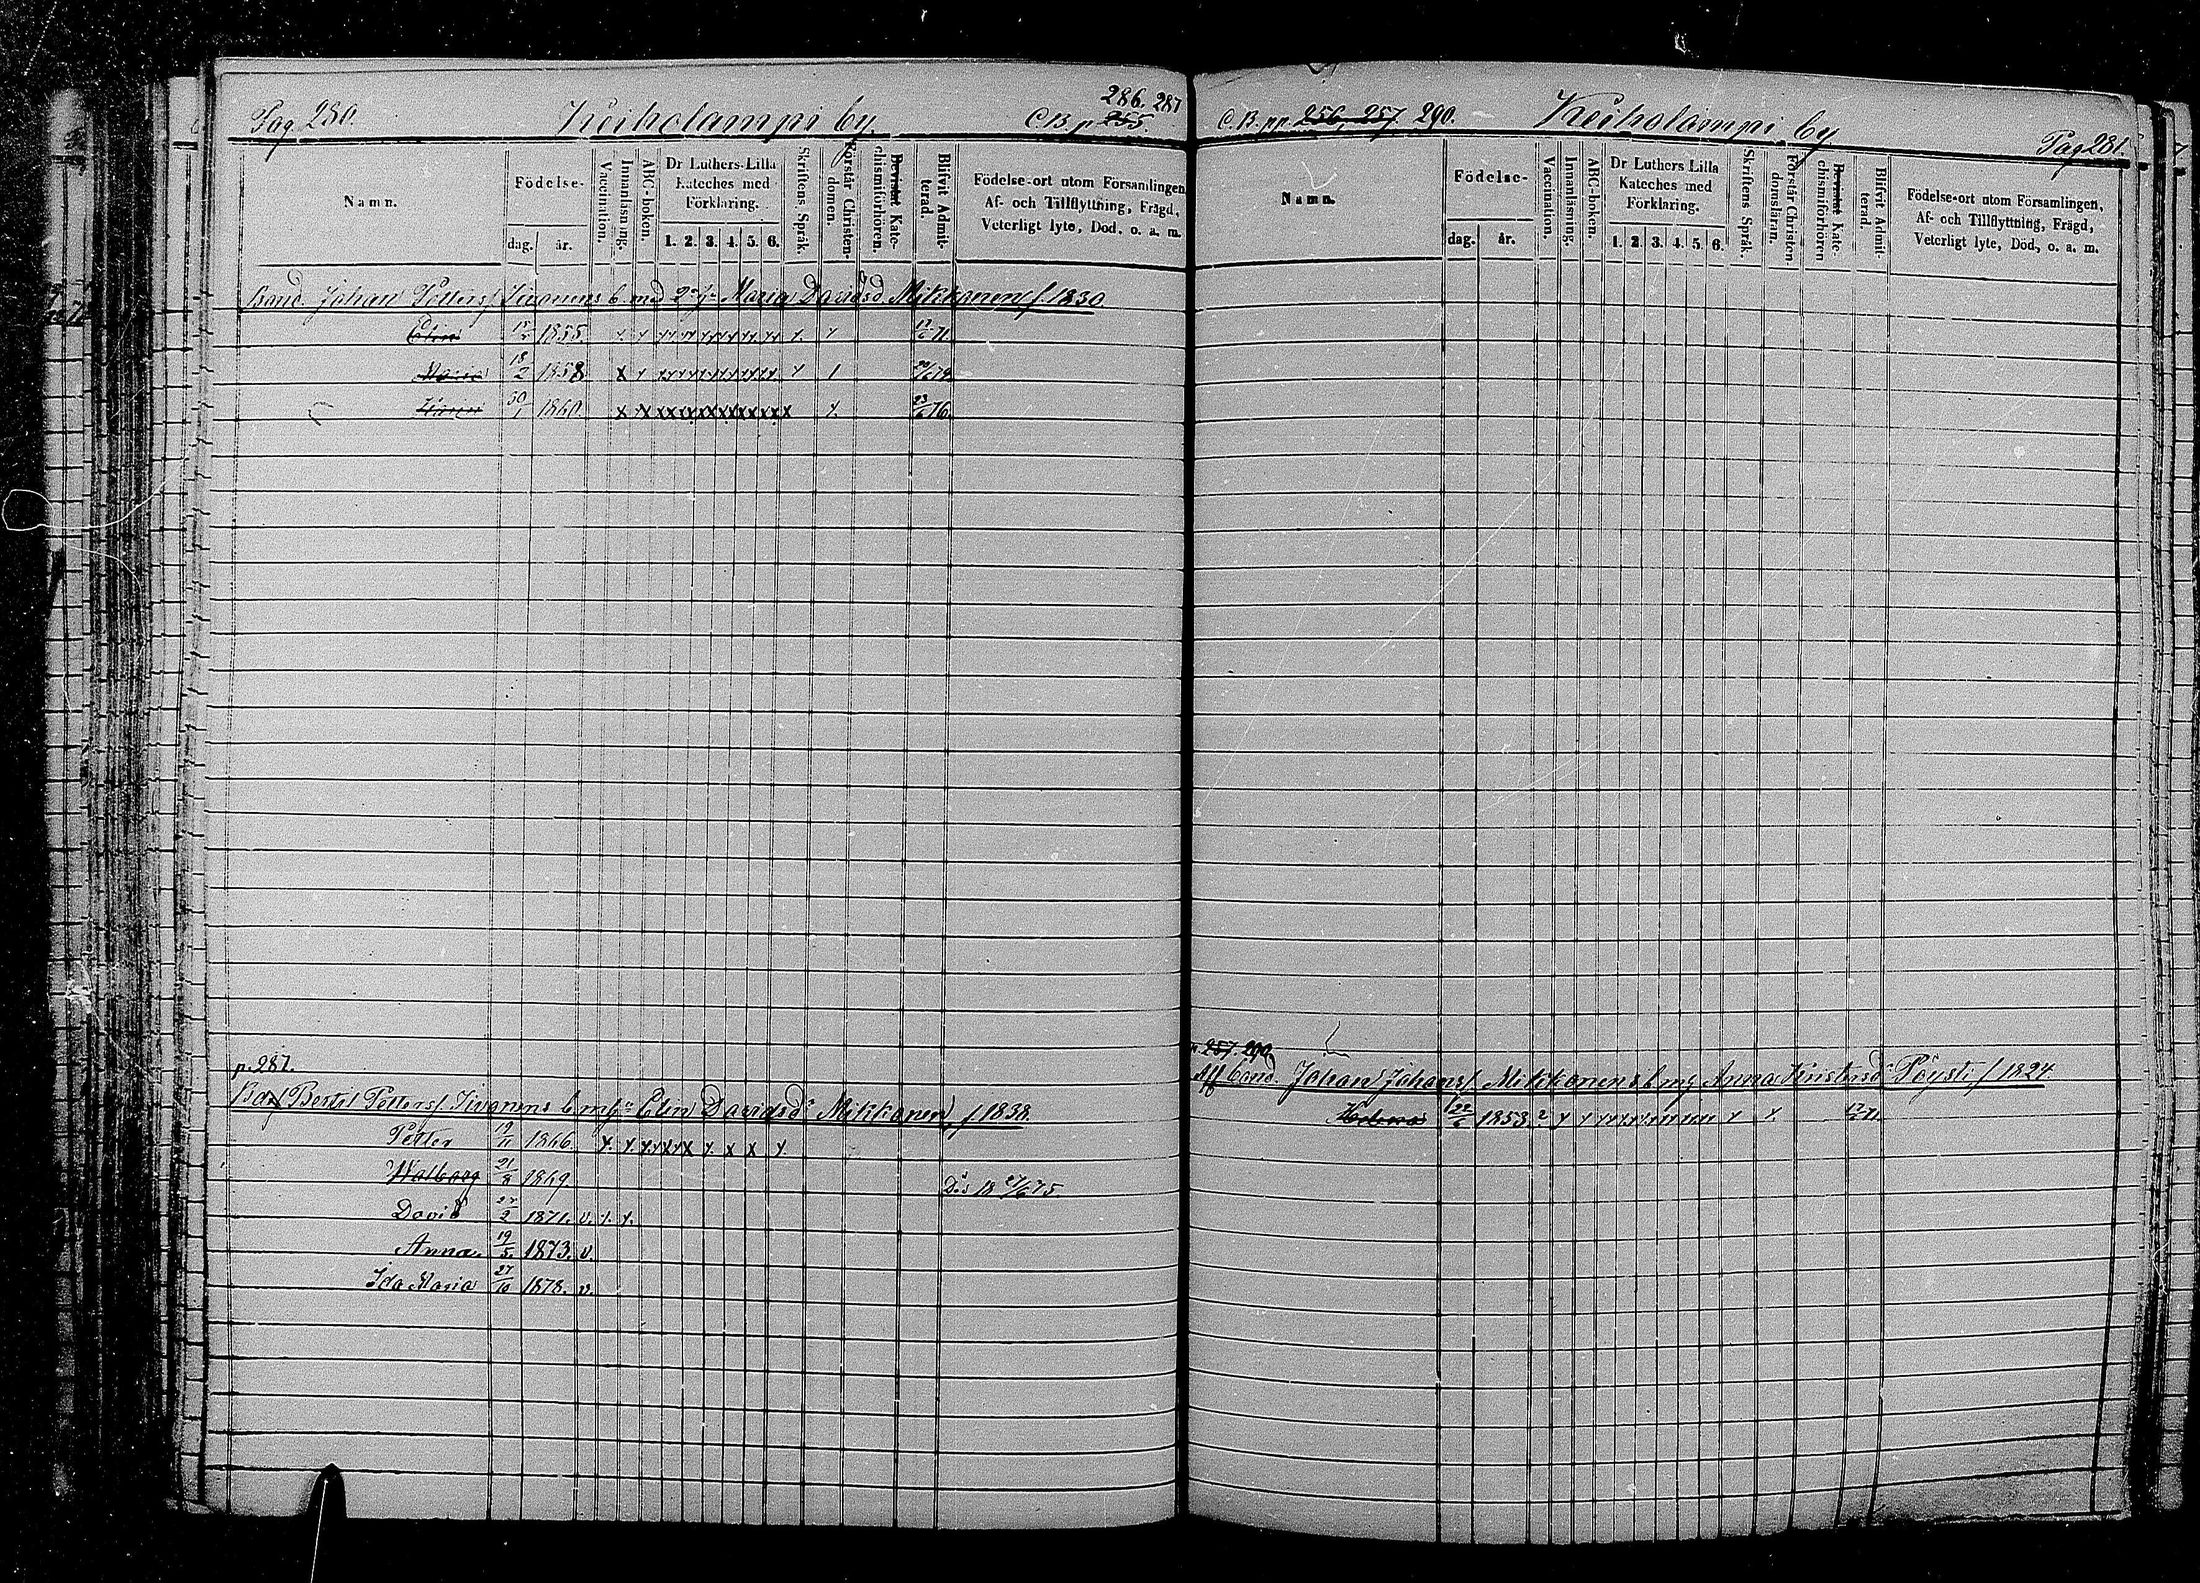 Pag. 280. Keiholampi by. C.B. p. 255. 286. 287
Namn.
Födelse-
dag. år.
Vaccination.
Innanläsning.
ABC-boken.
Dr Luthers Lilla Kateches med Förklaring.
1. 2. 3. 4. 5. 6.
Skriftens Språk.
Förstår Christendomen.
Bevistat Katechismiförhören.
Blifvit Admitterad.
Födelse-ort utom Församlingen,
Af- och Tillflyttning, Frägd,
Veterligt lyte, Död, o. a. m.
Bond. Johan Petterss. Iivonens b. med 2 h:u Maria Davidsd. Mikkonen f. 1830
Elin 1855. x x x x
Maria 18/2 1858 x x
Karin 30/1 1860 x x xx xx xx xx xx xx x x. 23/6 76.
p. 287.
Bdn Bertil Petterss Iivonens b m h:u Elin Davidsd:r Mikkonen f. 1838.
Petter 19/11 1866. x. x. x x x x x. x x x
Walborg 21/8 1869 Död 18 27/6 75
David 27/2 1871. v. x. x.
Anna. 19/5. 1873. v.
Ida Maria 27/10 1878. v.
C.B. pp. 256, 257. 290. Keiholampi by Pag 281.
Namn.
Födelse-
dag. år.
Vaccination.
Innanläsning.
ABC-boken.
Dr Luthers Lilla Kateches med Förklaring.
1. 2. 3. 4. 5. 6.
Skriftens Språk.
Förstår Christendomsläran.
Bevistat Katechismiförhören
Blifvit Admitterad.
Födelse-ort utom Församlingen,
Af- och Tillflyttning, Frägd,
Veterligt lyte, Död, o. a. m.
p. 257. 290
Aff bond. Johan Johanss Mikkonens b m h Anna Kristersd Pöysti f 1824
22/6 1853. x x x x